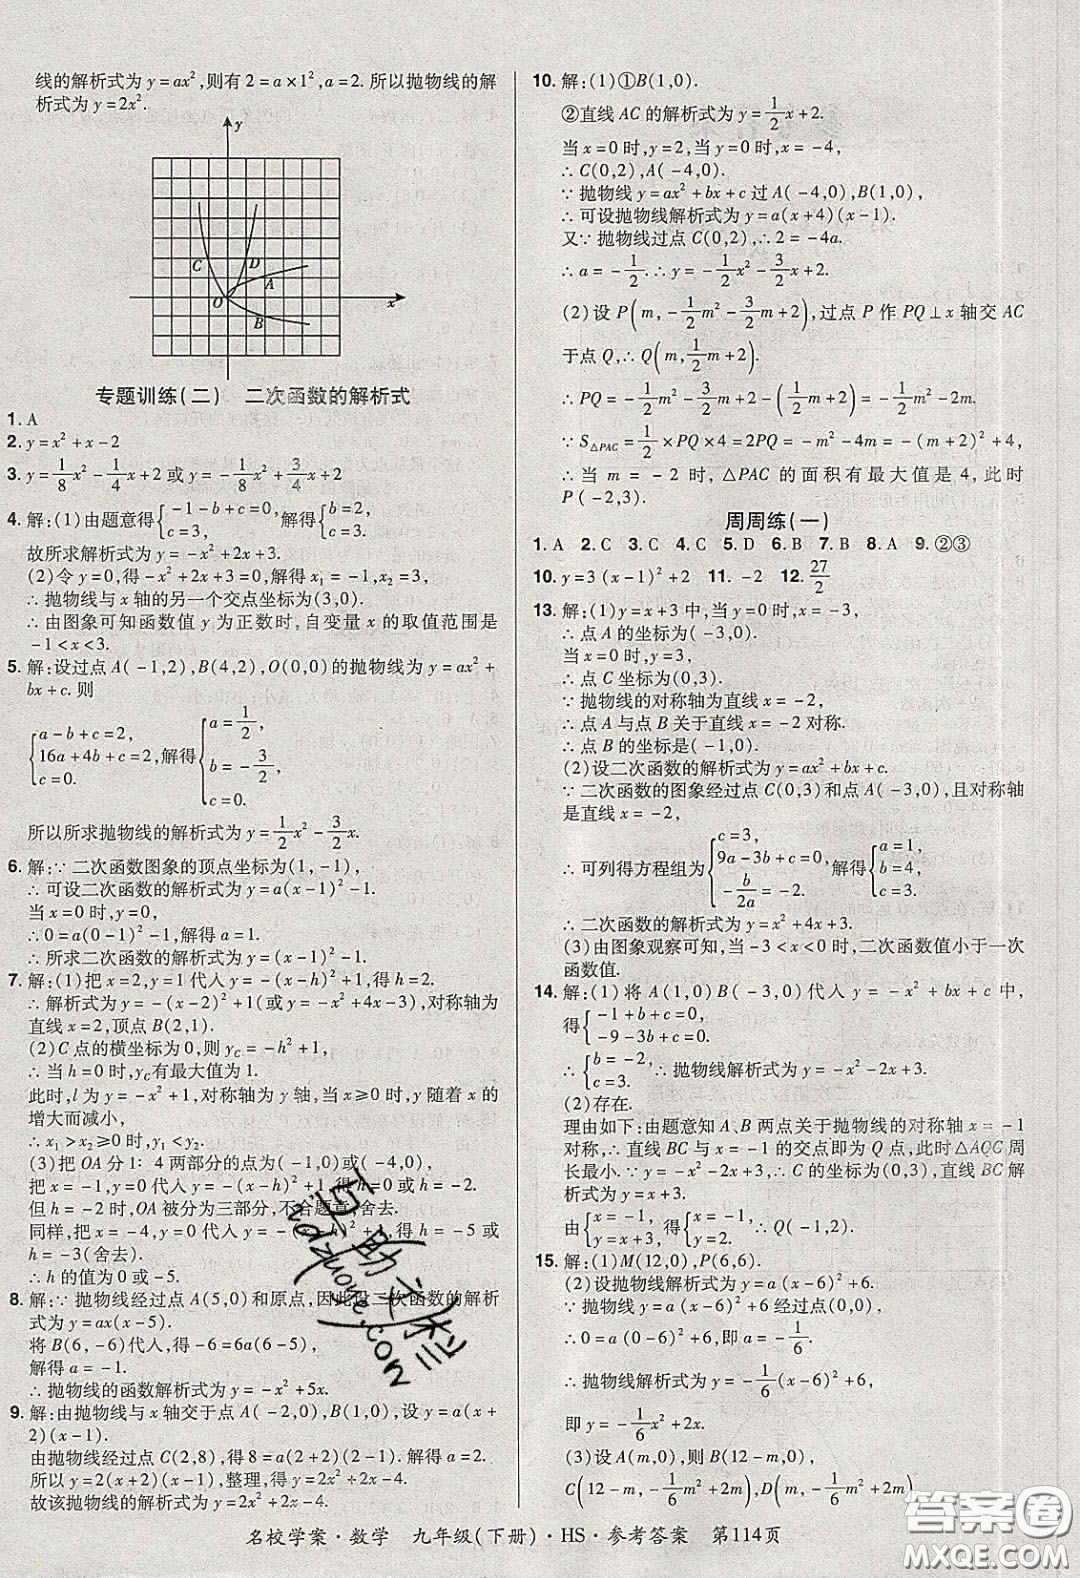 线的解析式为 y=ax²,则有 2=a×1²,a=2. 所以抛物线的解
析式为 y=2x².
y
C
D
A
O
x
B
专题训练(二) 二次函数的解析式
1. A
2. y=x²+x-2
3. y=1/8x²-1/4x+2 或 y=-1/8x²+3/4x+2
4. 解:(1)由题意得{-1-b+c=0, c=3. 解得{b=2, c=3.
故所求解析式为 y=-x²+2x+3.
(2)令 y=0,得-x²+2x+3=0,解得 x₁=-1,x₂=3.
∴抛物线与 x 轴的另一个交点坐标为(3,0).
∴由图象可知函数值 y 为正数时,自变量 x 的取值范围是
-1<x<3.
5. 解:设过点 A(-1,2),B(4,2),O(0,0)的抛物线为 y=ax²+
bx+c. 则
{a-b+c=2, 16a+4b+c=2, c=0. 解得{a=1/2, b=-3/2, c=0.
所以所求抛物线的解析式为 y=1/2x²-3/2x.
6. 解:∵二次函数图象的顶点坐标为(1,-1),
∴可设二次函数的解析式为 y=a(x-1)²-1.
当 x=0 时,y=0,
∴0=a(0-1)²-1,解得 a=1.
∴所求二次函数的解析式为 y=(x-1)²-1.
7. 解:(1)把 x=2,y=1 代入 y=-(x-h)²+1,得 h=2.
∴解析式为 y=-(x-2)²+1(或 y=-x²+4x-3),对称轴为
直线 x=2,顶点 B(2,1).
(2)C 点的横坐标为 0,则 y_C=-h²+1,
∴当 h=0 时,y_C有最大值为 1.
此时,l 为 y=-x²+1,对称轴为 y 轴,当 x≥0 时,y 随着 x 的
增大而减小,
∴x₁>x₂≥0 时,y₁<y₂.
(3)把 OA 分 1:4 两部分的点为(-1,0)或(-4,0),
把 x=-1,y=0 代入 y=-(x-h)²+1,得 h=0 或 h=-2.
但 h=-2 时,OA 被分为三部分,不合题意,舍去.
同样,把 x=-4,y=0 代入 y=-(x-h)²+1,得 h=-5 或
h=-3(舍去).
∴h 的值为 0 或-5.
8. 解:∵抛物线经过点 A(5,0)和原点,因此设二次函数的解析
式为 y=ax(x-5).
将 B(6,-6)代入,得-6=6a(6-5),
解得 a=-1.
∴抛物线的函数解析式为 y=-x²+5x.
9. 解:由抛物线与 x 轴交于点 A(-2,0),B(1,0),设 y=a(x+
2)(x-1).
由抛物线经过点 C(2,8),得 8=a(2+2)(2-1). 解得 a=2.
所以 y=2(x+2)(x-1),整理,得 y=2x²+2x-4.
故该抛物线的解析式为 y=2x²+2x-4.
10. 解:(1)①B(1,0).
②直线 AC 的解析式为 y=1/2x+2.
当 x=0 时,y=2,当 y=0 时,x=-4,
∴C(0,2),A(-4,0).
∵抛物线 y=ax²+bx+c 过 A(-4,0),B(1,0),
∴可设抛物线解析式为 y=a(x+4)(x-1).
又∵抛物线过点 C(0,2),∴2=-4a.
∴a=-1/2. ∴y=-1/2x²-3/2x+2.
(2)设 P(m,-1/2m²-3/2m+2),过点 P 作 PQ⊥x 轴交 AC
于点 Q,∴Q(m,1/2m+2).
∴PQ=-1/2m²-3/2m+2-(1/2m+2)=-1/2m²-2m.
∵S△PAC=1/2×PQ×4=2PQ=-m²-4m=-(m+2)²+4,
∴当 m=-2 时,△PAC 的面积有最大值是 4,此时
P(-2,3).
周周练(一)
1. A 2. C 3. C 4. C 5. D 6. B 7. B 8. A 9. ②③
10. y=3(x-1)²+2 11. -2 12. 27/2
13. 解:(1)y=x+3 中,当 y=0 时,x=-3,
∴点 A 的坐标为(-3,0).
当 x=0 时,y=3,
∴点 C 坐标为(0,3).
∵抛物线的对称轴为直线 x=-2,
∴点 A 与点 B 关于直线 x=-2 对称.
∴点 B 的坐标是(-1,0).
(2)设二次函数的解析式为 y=ax²+bx+c.
∵二次函数的图象经过点 C(0,3)和点 A(-3,0),且对称轴
是直线 x=-2,
∴可列得方程组为{c=3, 9a-3b+c=0, -b/2a=-2. 解得{a=1, b=4, c=3.
∴二次函数的解析式为 y=x²+4x+3.
(3)由图象观察可知,当-3<x<0 时,二次函数值小于一次
函数值.
14. 解:(1)将 A(1,0)B(-3,0)代入 y=-x²+bx+c 中,
得{-1+b+c=0, -9-3b+c=0.
∴{b=-2, c=3. ∴抛物线解析式为 y=-x²-2x+3.
(2)存在.
理由如下:由题意知 A、B 两点关于抛物线的对称轴 x=-1
对称,∴直线 BC 与 x=-1 的交点即为 Q 点,此时△AQC 周
长最小. ∵y=-x²-2x+3,∴C 的坐标为(0,3),直线 BC 解
析式为 y=x+3.
由{x=-1, y=x+3. 得{x=-1, y=2. ∴Q(-1,2).
15. 解:(1)M(12,0),P(6,6).
(2)设抛物线解析式为 y=a(x-6)²+6.
∵抛物线 y=a(x-6)²+6 经过点(0,0),
∴0=a(0-6)²+6,即 a=-1/6.
∴抛物线解析式为 y=-1/6(x-6)²+6,
即 y=-1/6x²+2x.
(3)设 A(m,0),则 B(12-m,0),
C(12-m,-1/6m²+2m),D(m,-1/6m²+2m).
名校学案·数学 九年级(下册)·HS·参考答案 第114页
答案圈
MXQE.COM